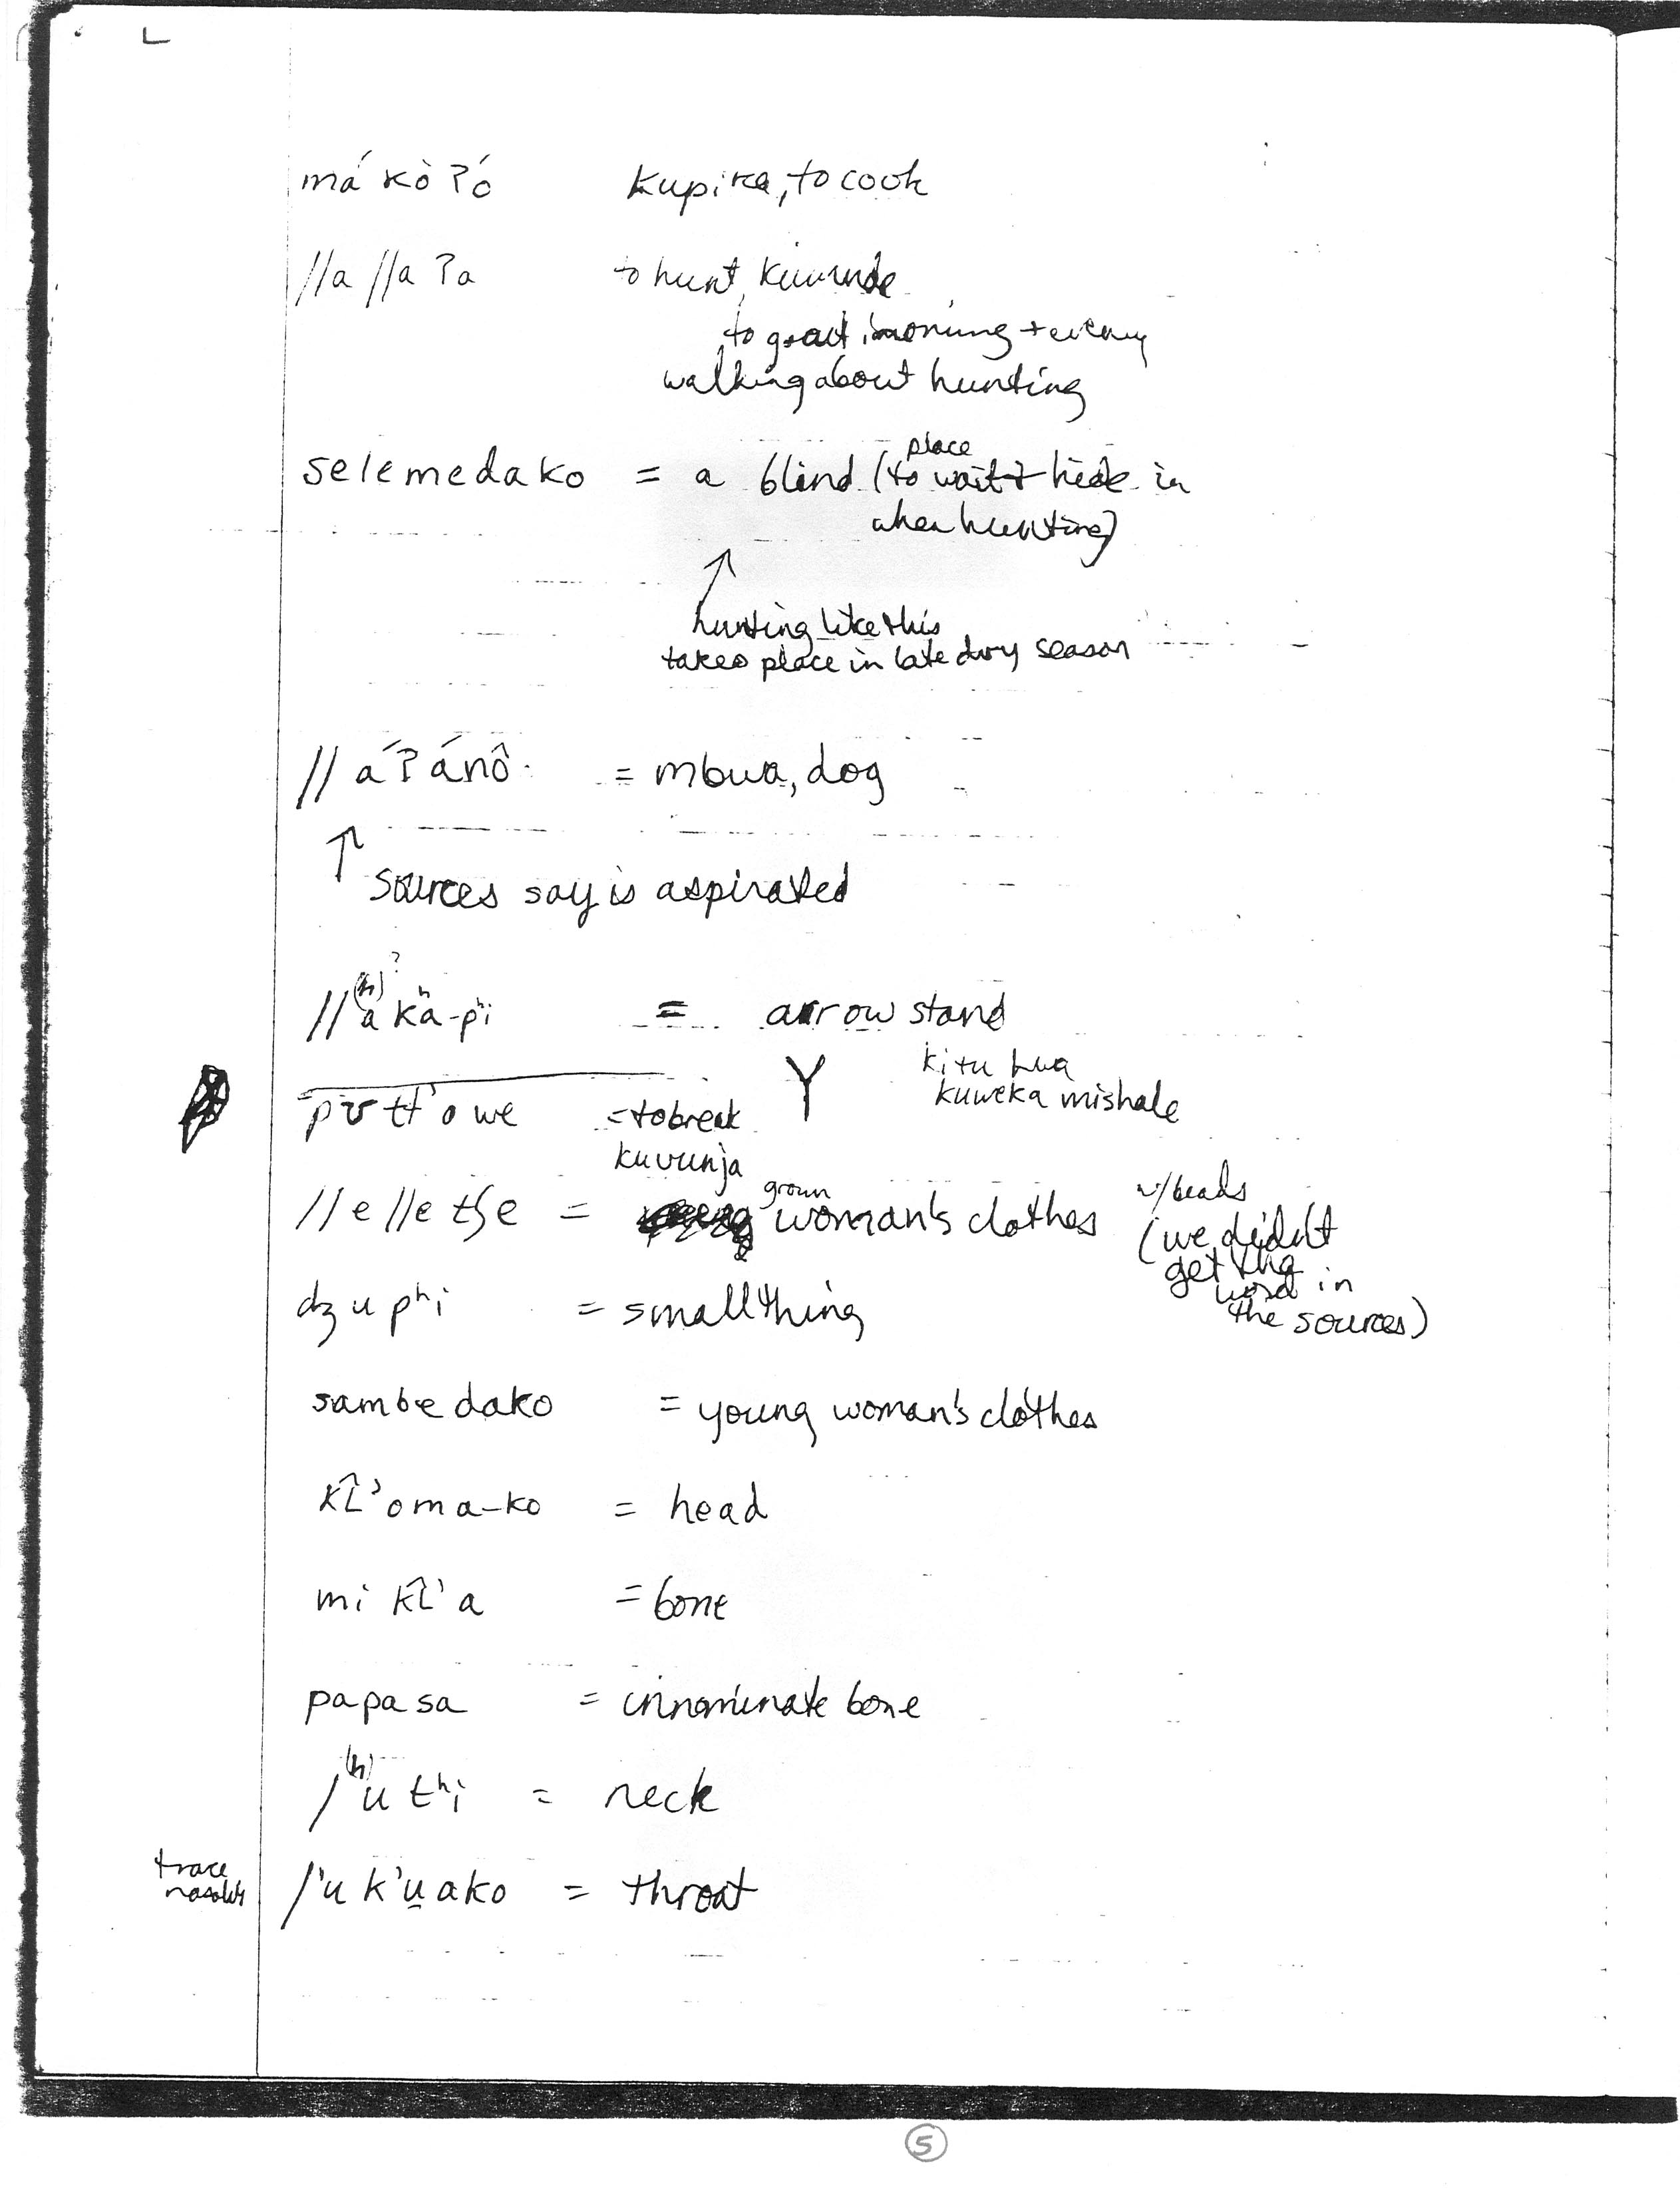 má kò ʔó kupika, to cook
//a //a ʔa to hunt, kuwinda
to go out in morning + evening
walking about hunting
selemedako = a blind (place to wait + hide in
when hunting)
↑
hunting like this
takes place in late dry season
// á ʔ á nô = mbwa, dog
↑ sources say is aspirated
//⁽ʰ⁾ʔa kʰa-pʰi = arrow stand
Y kitu kwa
kuweka mishale
tt'owe = to break
kuvunja
//e//e tʃe = grown woman's clothes w/beads
(we didn't
get the
word in
the sources)
dʒupʰi = small thing
sambedako = young woman's clothes
kL̂'oma-ko = head
mi kL̂'a = bone
papasa = innominate bone
/⁽ʰ⁾utʰi = neck
trace
/'u k'u̱ako = throat
5